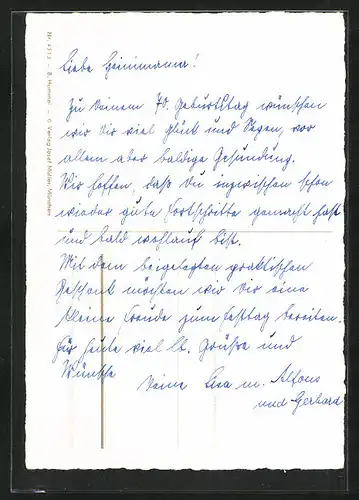 Nr. 4513 – B. Hummel – © Verlag Josef Müller, München
Liebe Heinimama!
Zu Deinem 70. Geburtstag wünschen
wir Dir viel Glück und Segen, vor
allem aber baldige Gesundung.
Wir hoffen, daß Du inzwischen schon
wieder gute Fortschritte gemacht hast
und bald wohlauf bist.
Mit dem beigelegten praktischen
Geschenk möchten wir Dir eine
kleine Freude zum Festtag bereiten.
Für heute viel lb. Grüße und
Wünsche
Deine Lisa m. Alfons
und Gerhard